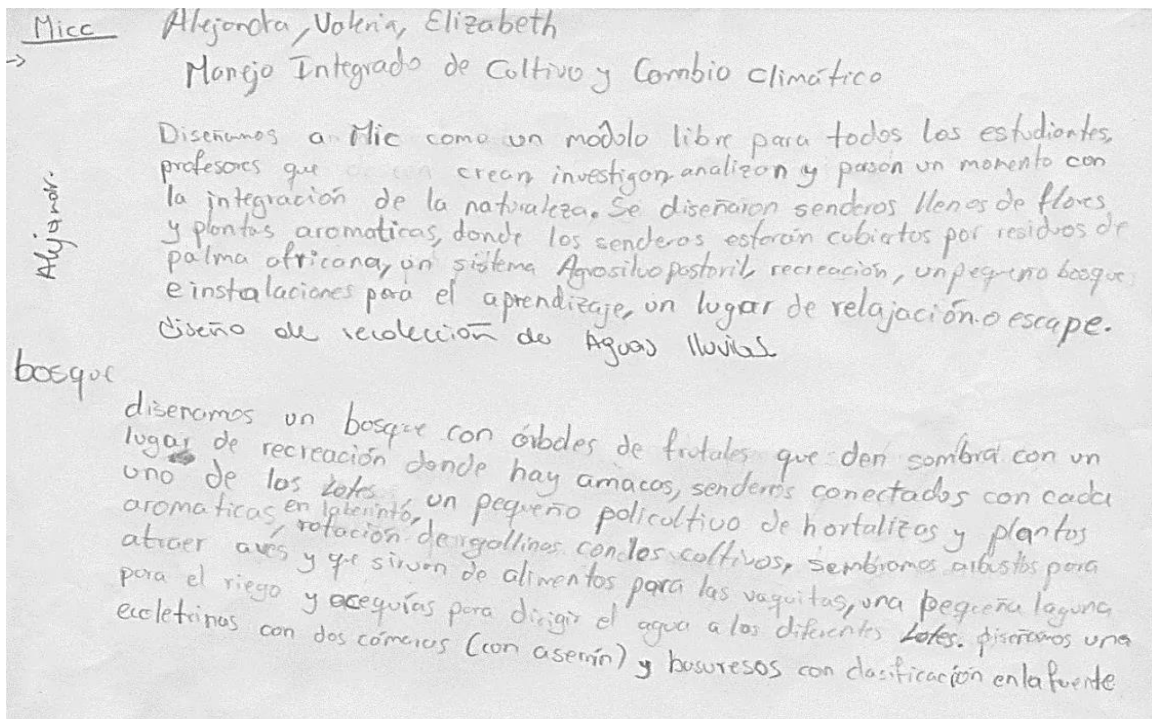 Micc Alejandra, Valeria, Elizabeth
→ Manejo Integrado de Cultivo y Cambio climático
Alejandr.
Diseñamos a Mic como un módulo libre para todos los estudiantes,
profesores que crean, investigan, analizan y pasan un momento con
la integración de la naturaleza. Se diseñaron senderos llenos de flores
y plantas aromaticas, donde los senderos estarán cubiertos por residuos de
palma africana, un sistema Agrosilvopastoril, recreación, un pequeno bosque
e instalaciones para el aprendizaje, un lugar de relajación o escape.
diseño de recolección de Aguas lluvias
bosque
disenamos un bosque con árboles de frutales que den sombra con un
lugar de recreación donde hay amacas, senderos conectados con cada
uno de los Lotes, un pequeño policultivo de hortalizas y plantas
aromaticas en laberinto, rotación de gallinas con los cultivos, sembramos arbustos para
atraer aves y que sirven de alimentos para las vaquitas, una pequeña laguna
para el riego y acequías para dirigir el agua a los diferentes Lotes. diseñamos una
ecoletrinas con dos cámaras (con aserrín) y basureros con clasificación en la fuente